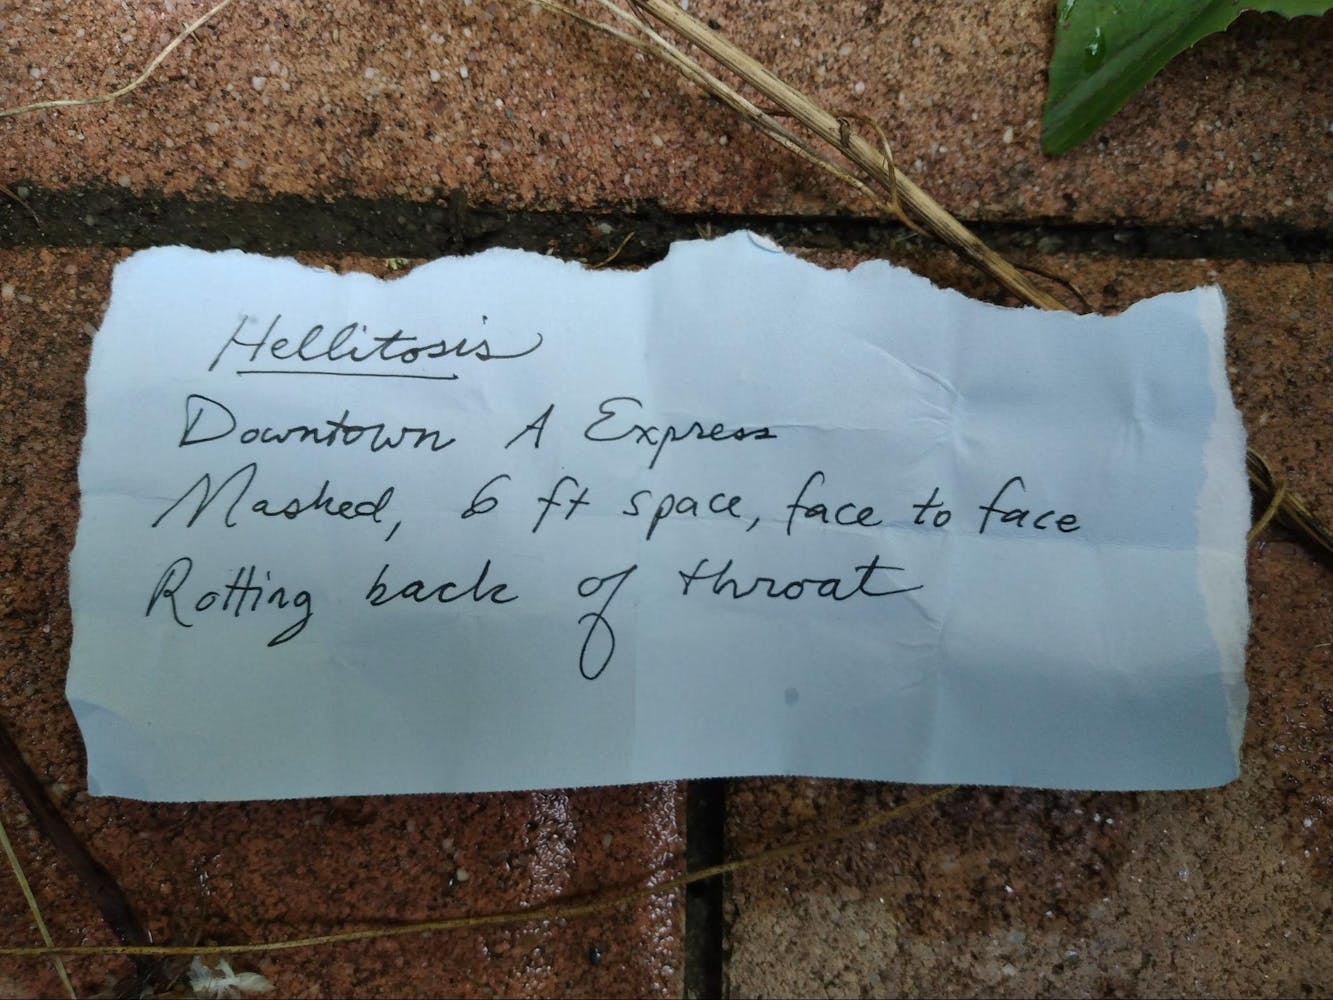 Hellitosis
Downtown A Express
Masked, 6 ft space, face to face
Rotting back of throat